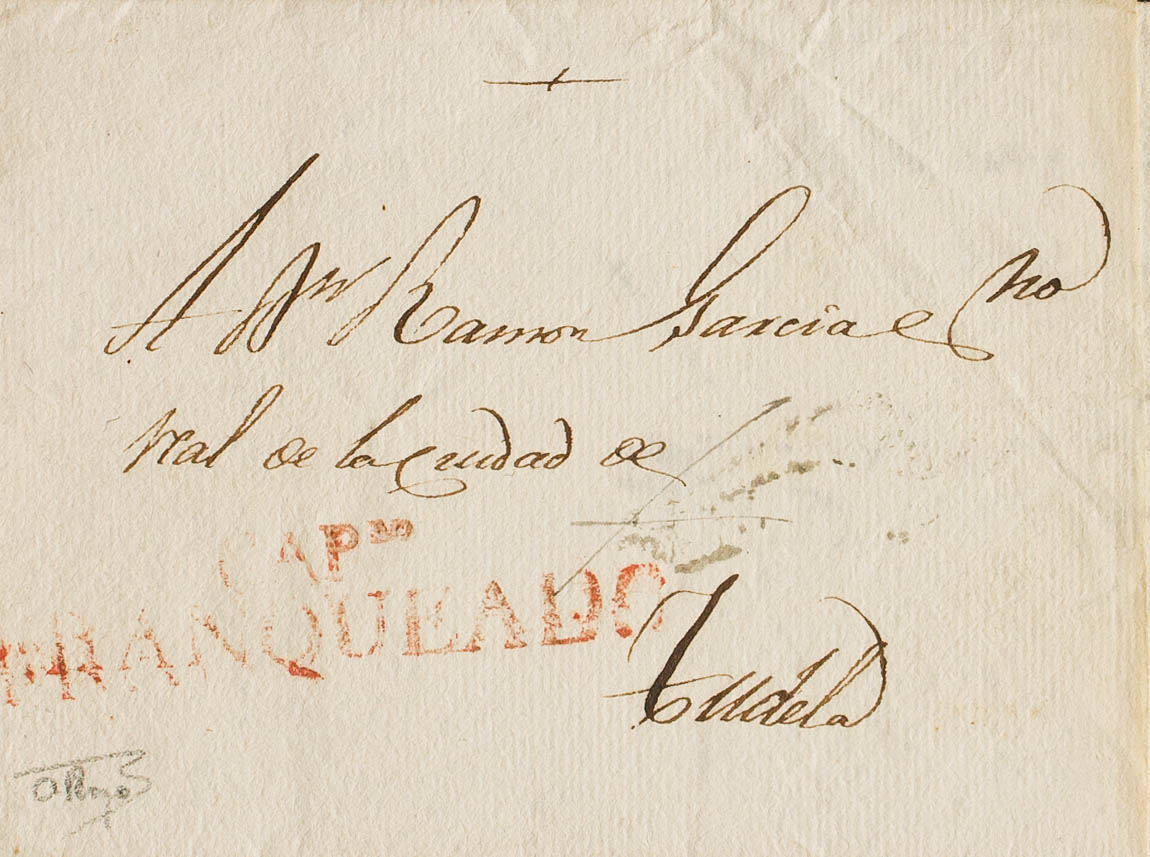 A Dn Ramon Garcia esno
real de la Ciudad de
CAPDO
FRANQUEADO
Tudela